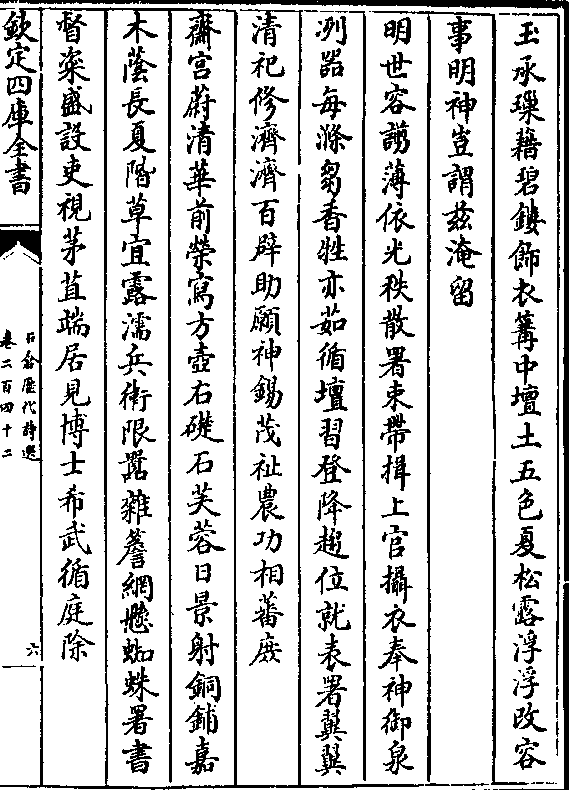 玉承璅藉碧鏤飾衣篝中壇土五色夏松露浮浮改容
事明神豈謂茲淹留
明世容謭薄依光秩散署束帶揖上官攝衣奉神御泉
冽器每滌芻香牲亦茹循壇習登降趨位就表署翼翼
清祀修濟濟百辟助願神錫茂祉農功相蕃廡
齋宮蔚清華前榮寫方壺右礎石芙蓉日景射銅鋪嘉
木蔭長夏階草宜露濡兵衛限囂雜簷網懸蜘蛛署書
督粢盛設吏視茅苴端居見博士希武循庭除
欽定四庫全書
石倉歷代詩選
卷二百四十二
六